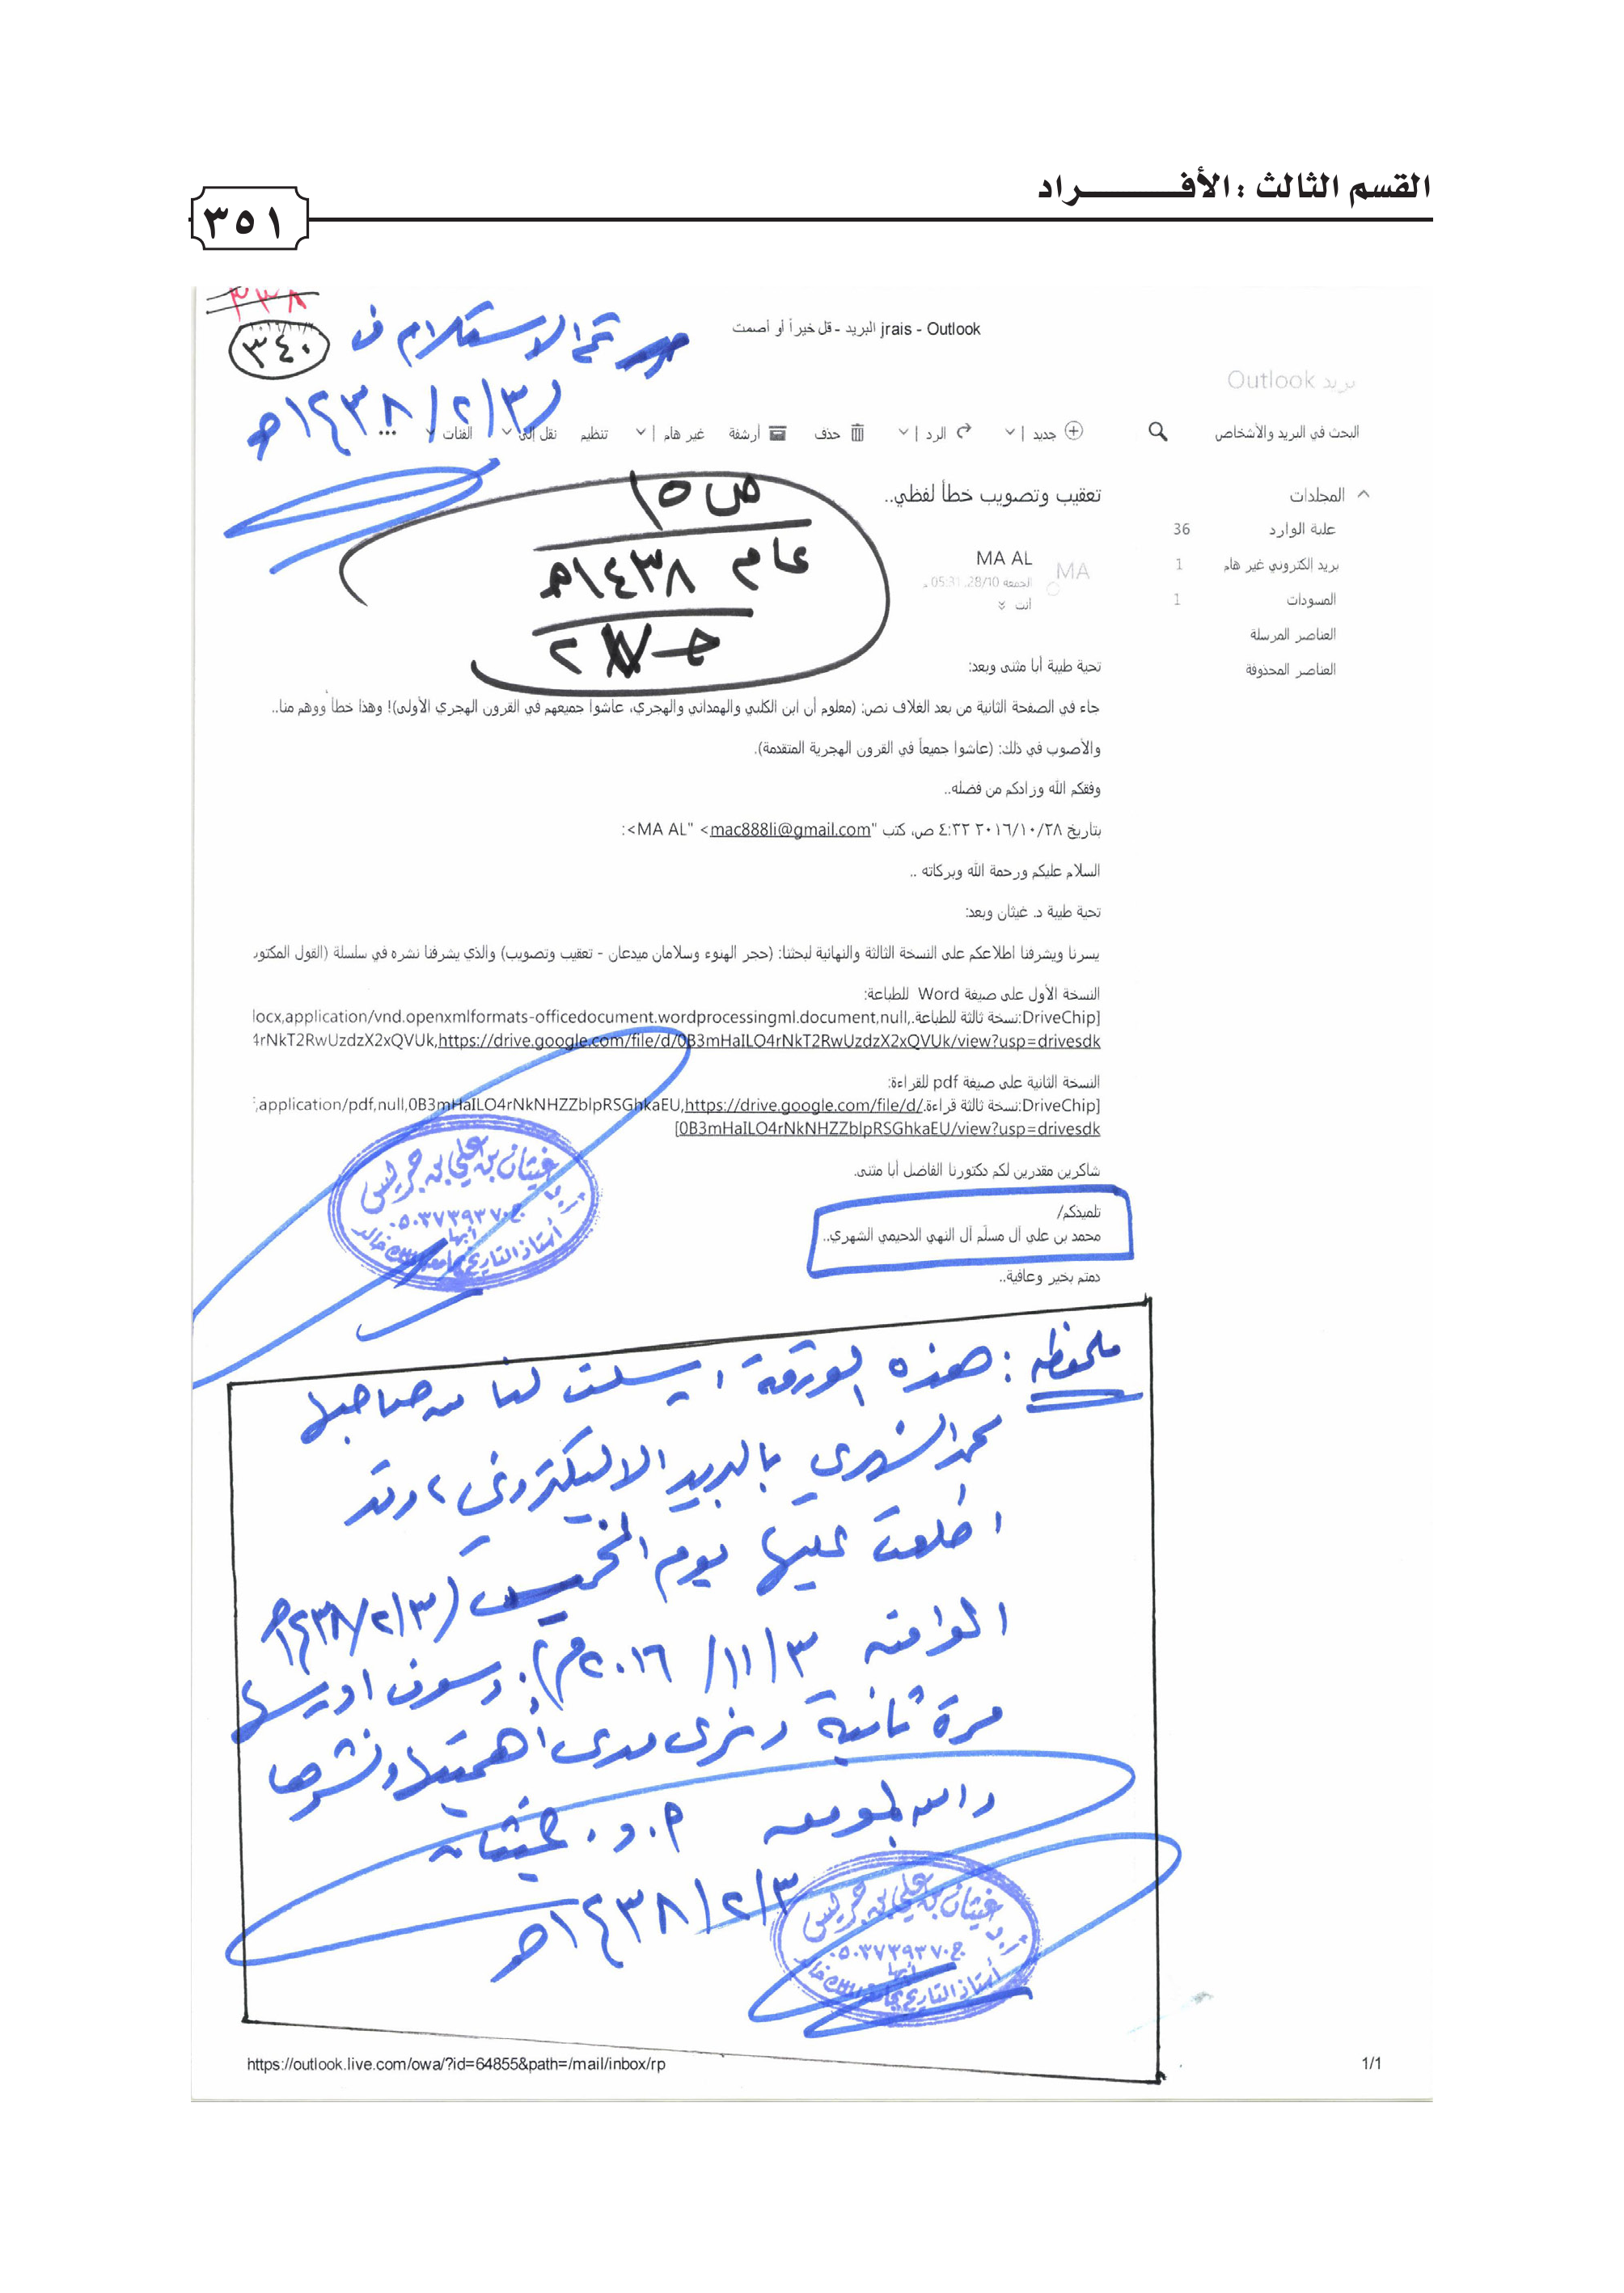 القسم الثالث : الأفـــــــراد
٣٥١
٣٣٨
٣٤٠
تم الاستلام في
١٤٣٨/٢/٣هـ
jrais - Outlook البريد - قل خيراً أو أصمت
بريد Outlook
البحث في البريد والأشخاص
جديد | الرد | حذف أرشفة غير هام | تنظيم نقل إلى الفئات ...
المجلدات
علبة الوارد 36
بريد إلكتروني غير هام 1
المسودات 1
العناصر المرسلة
العناصر المحذوفة
تعقيب وتصويب خطأ لفظي..
ص ١٥
عام ١٤٣٨هـ
MA AL
MA
الجمعة 28/10، 05:31 م
أنت
تحية طيبة أبا مثنى وبعد:
جاء في الصفحة الثانية من بعد الغلاف نص: (معلوم أن ابن الكلبي والهمداني والهجري، عاشوا جميعهم في القرون الهجري الأولى)! وهذا خطأ ووهم منا..
والأصوب في ذلك: (عاشوا جميعاً في القرون الهجرية المتقدمة).
وفقكم الله وزادكم من فضله..
بتاريخ ٢٠١٦/١٠/٢٨ ٤:٣٢ ص، كتب "MA AL" <mac888li@gmail.com>:
السلام عليكم ورحمة الله وبركاته ..
تحية طيبة د. غيثان وبعد:
يسرنا ويشرفنا اطلاعكم على النسخة الثالثة والنهائية لبحثنا: (حجر الهنوء وسلامان ميدعان - تعقيب وتصويب) والذي يشرفنا نشره في سلسلة (القول المكتوب
النسخة الأول على صيغة Word للطباعة:
[DriveChip:نسخة ثالثة للطباعة.locx,application/vnd.openxmlformats-officedocument.wordprocessingml.document,null,
4rNkT2RwUzdzX2xQVUk,https://drive.google.com/file/d/0B3mHaILO4rNkT2RwUzdzX2xQVUk/view?usp=drivesdk
النسخة الثانية على صيغة pdf للقراءة:
[DriveChip:نسخة ثالثة قراءة.,application/pdf,null,0B3mHaILO4rNkNHZZblpRSGhkaEU,https://drive.google.com/file/d/
0B3mHaILO4rNkNHZZblpRSGhkaEU/view?usp=drivesdk]
شاكرين مقدرين لكم دكتورنا الفاضل أبا مثنى.
تلميذكم/
محمد بن علي آل مسلّم آل النهي الدحيمي الشهري..
دمتم بخير وعافية..
أ.د. غيثان بن علي بن جريس
ج.٠٥٠٣٧٣٩٣٧٠
أبها
أستاذ التاريخ بجامعة الملك خالد
ملحوظة : هذه الورقة ارسلت لنا من صاحبها
محمد الشهري بالبريد الاليكتروني ، وقد
اطلعت عليها يوم الخميس (١٤٣٨/٢/٣هـ
الموافق ٣ / ١١ / ٢٠١٦م). وسوف ادرسها
مرة ثانية ونرى مدى أهميتها ونشرها
والله الموفق أ.د. غيثان
١٤٣٨/٢/٣هـ
أ.د. غيثان بن علي بن جريس
ج.٠٥٠٣٧٣٩٣٧٠
أبها
أستاذ التاريخ بجامعة الملك خالد
https://outlook.live.com/owa/?id=64855&path=/mail/inbox/rp
1/1